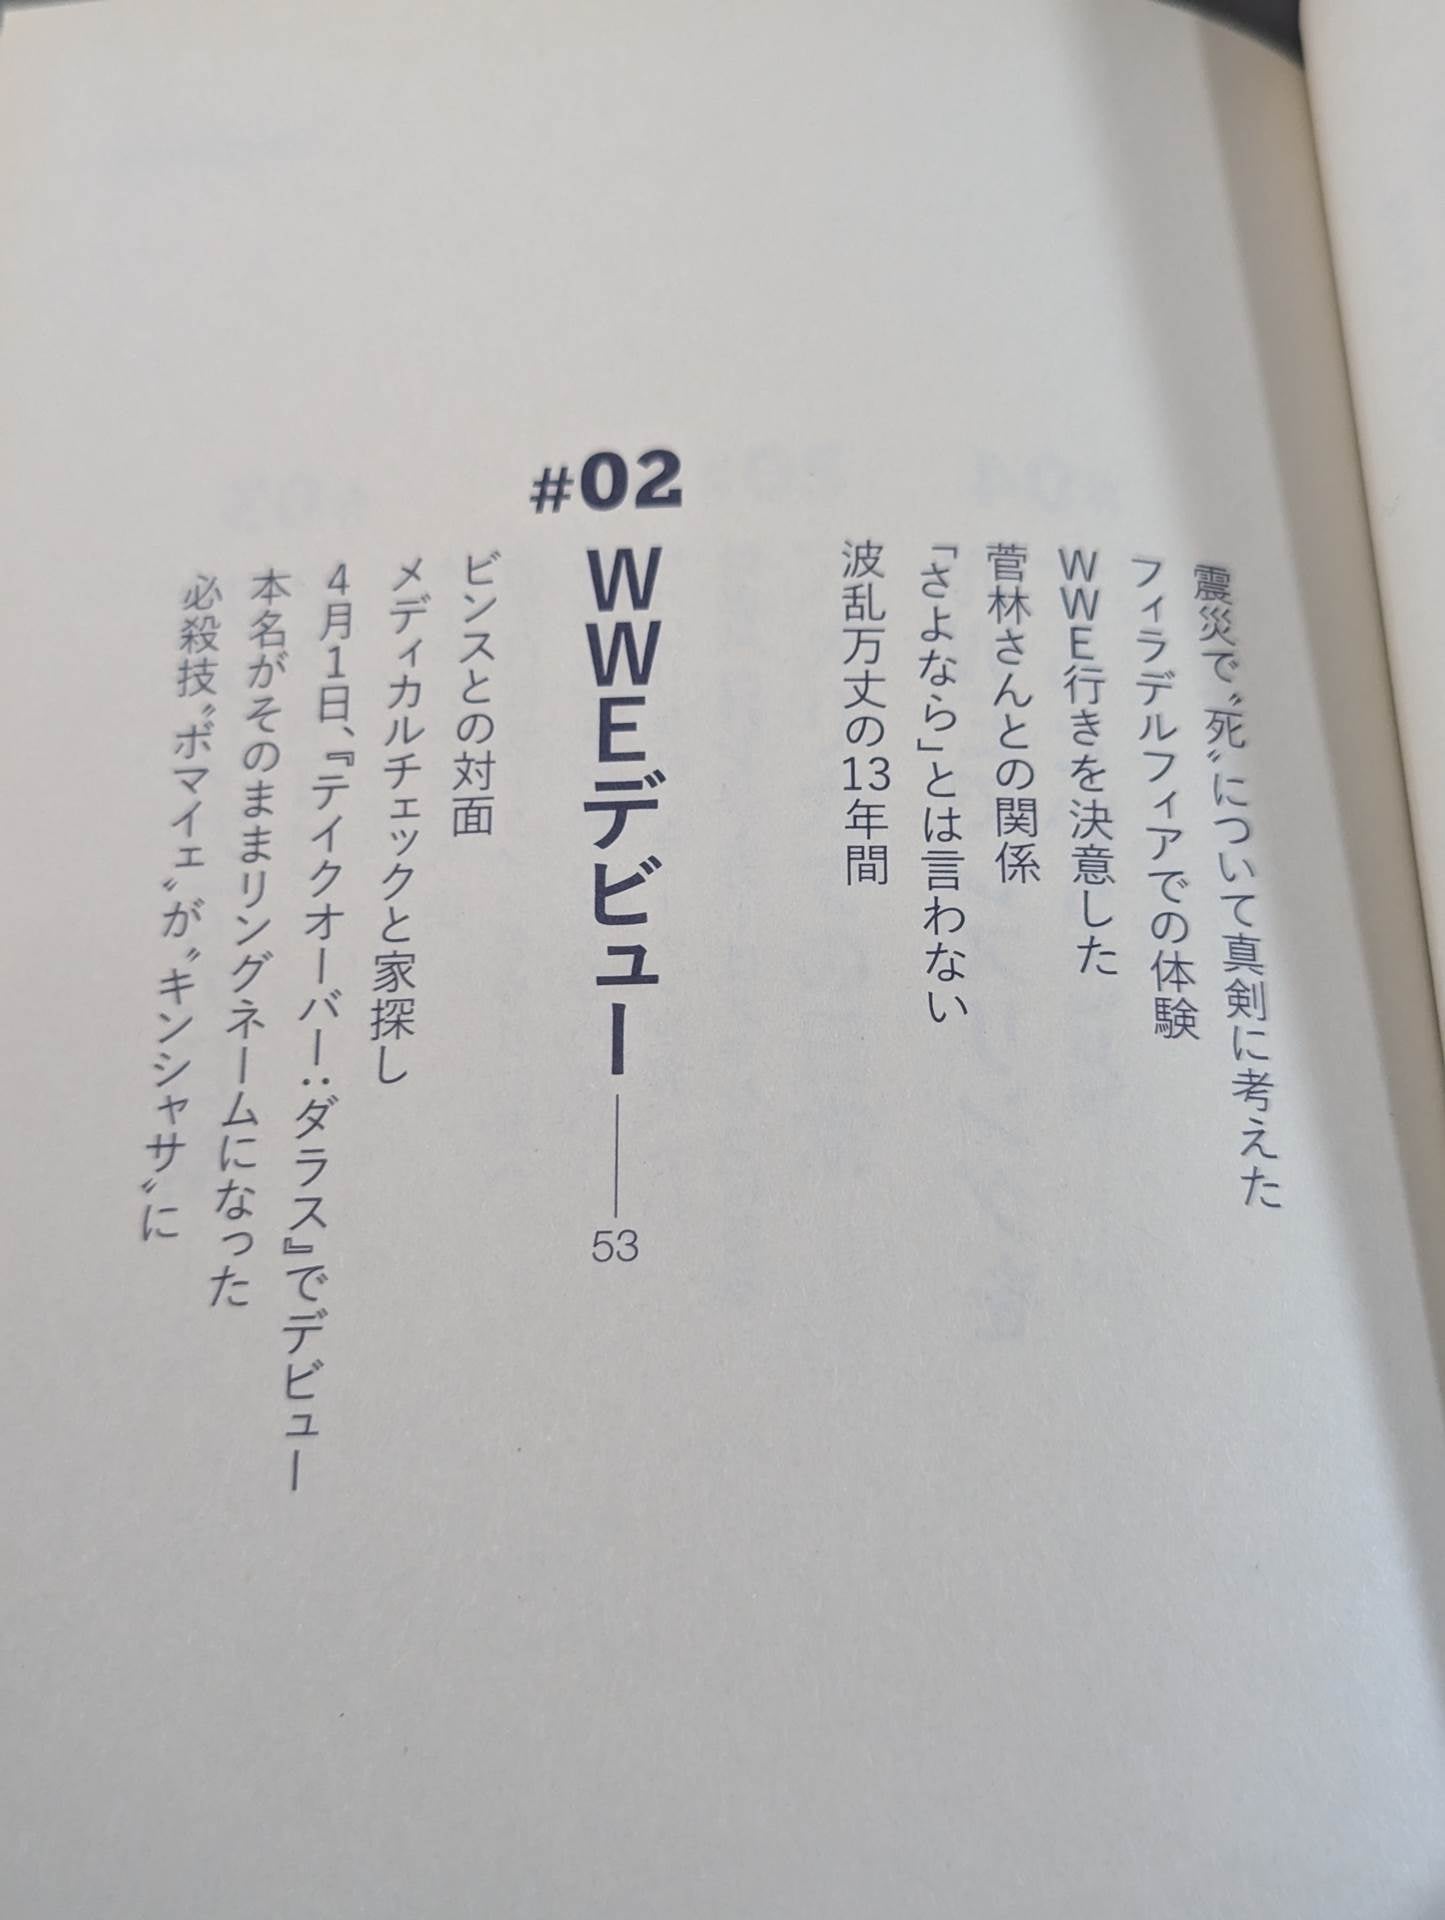 震災で〝死〟について真剣に考えた
フィラデルフィアでの体験
WWE行きを決意した
菅林さんとの関係
「さよなら」とは言わない
波乱万丈の13年間
#02 WWEデビュー 53
ビンスとの対面
メディカルチェックと家探し
4月1日、『テイクオーバー:ダラス』でデビュー
本名がそのままリングネームになった
必殺技〝ボマイェ〟が〝キンシャサ〟に